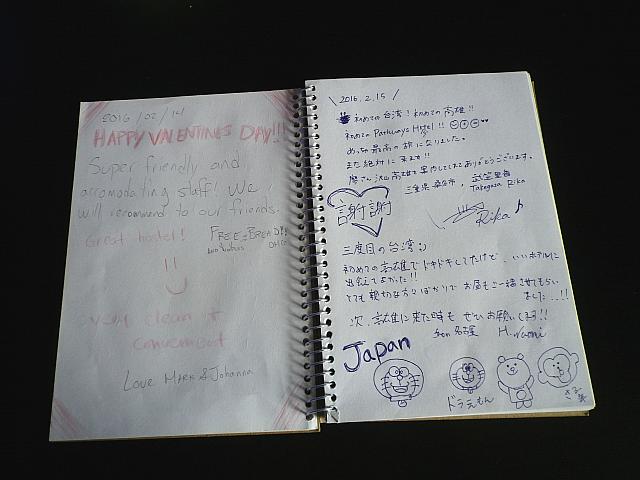 2016/02/14
HAPPY VALENTINES DAY!!!
Super friendly and
accomodating staff! We
will recommend to our friends.
Great hostel!
FREE BREAD!!
very clean &
convenient
Love Mark & Johanna
2016.2.15
初めての台湾!初めての高雄!!
初めてのPathways Hotel!!
めっちゃ最高の旅になりました。
また絶対に来ます!!
高雄を案内してくれてありがとうございます。
三重県桑名市
Takegawa Rika
謝謝
Rika♪
三度目の台湾
初めての高雄でドキドキしてたけど、いいホテルに
出会えてよかった!!
とても親切な方々ばかりでお昼もご一緒させてもらい
ました...!!
次、高雄に来た時もぜひお願いします!!
from 名古屋
Japan
ドラえもん